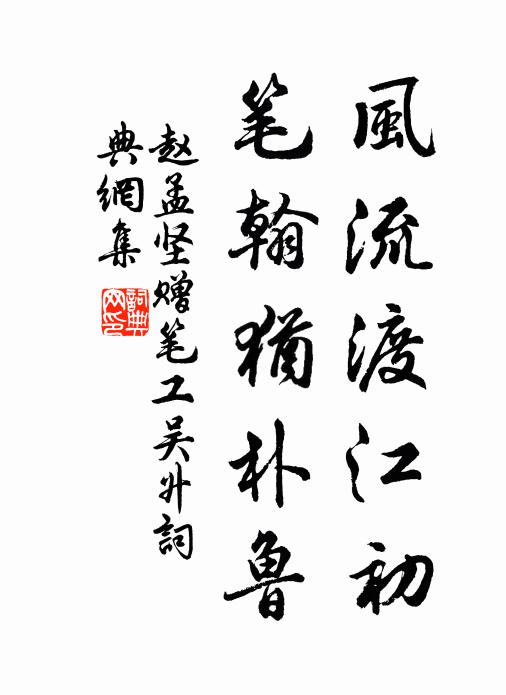 風流渡江初
笔翰猶朴魯
赵孟坚赠笔工吴升詞
典網集
詞典
网印